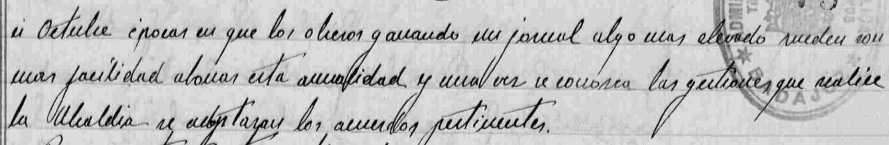 ú Octubre épocas en que los obreros ganando un jornal algo mas elevado pueden con
mas facilidad abonar esta anualidad y una vez se conozca las gestiones que realice
la Alcaldia se adoptaran los acuerdos pertinentes.